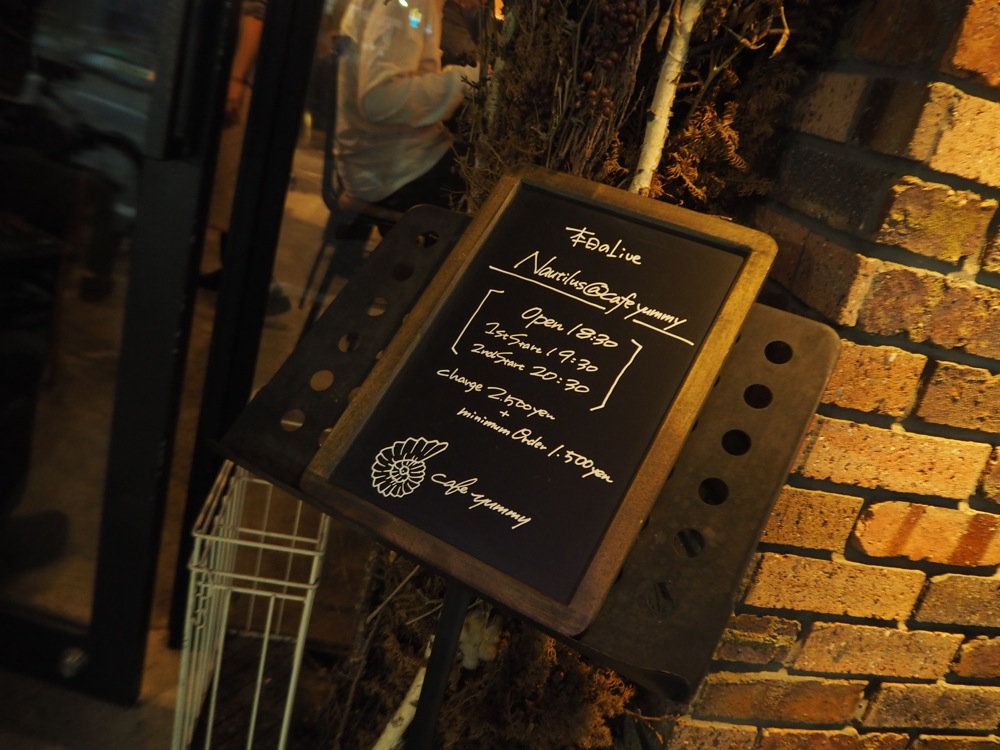 本日のLive
Nautilus@cafe yummy
Open 18:30
1st Start 19:30
2nd Start 20:30
charge 2.500yen
+
minimum Order 1.500yen
Cafe-yummy